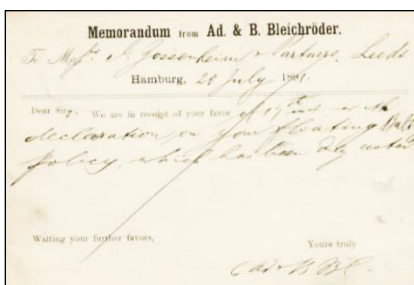 Memorandum from Ad. & B. Bleichröder.
To Messrs. J. Gossenheim & Partners, Leeds
Hamburg, 20 July 1891.
Dear Sirs, We are in receipt of your favor of 19th inst with
declaration on your floating
policy, which has been duly noted
Waiting your further favors,
Yours truly
Ad & B Bl.